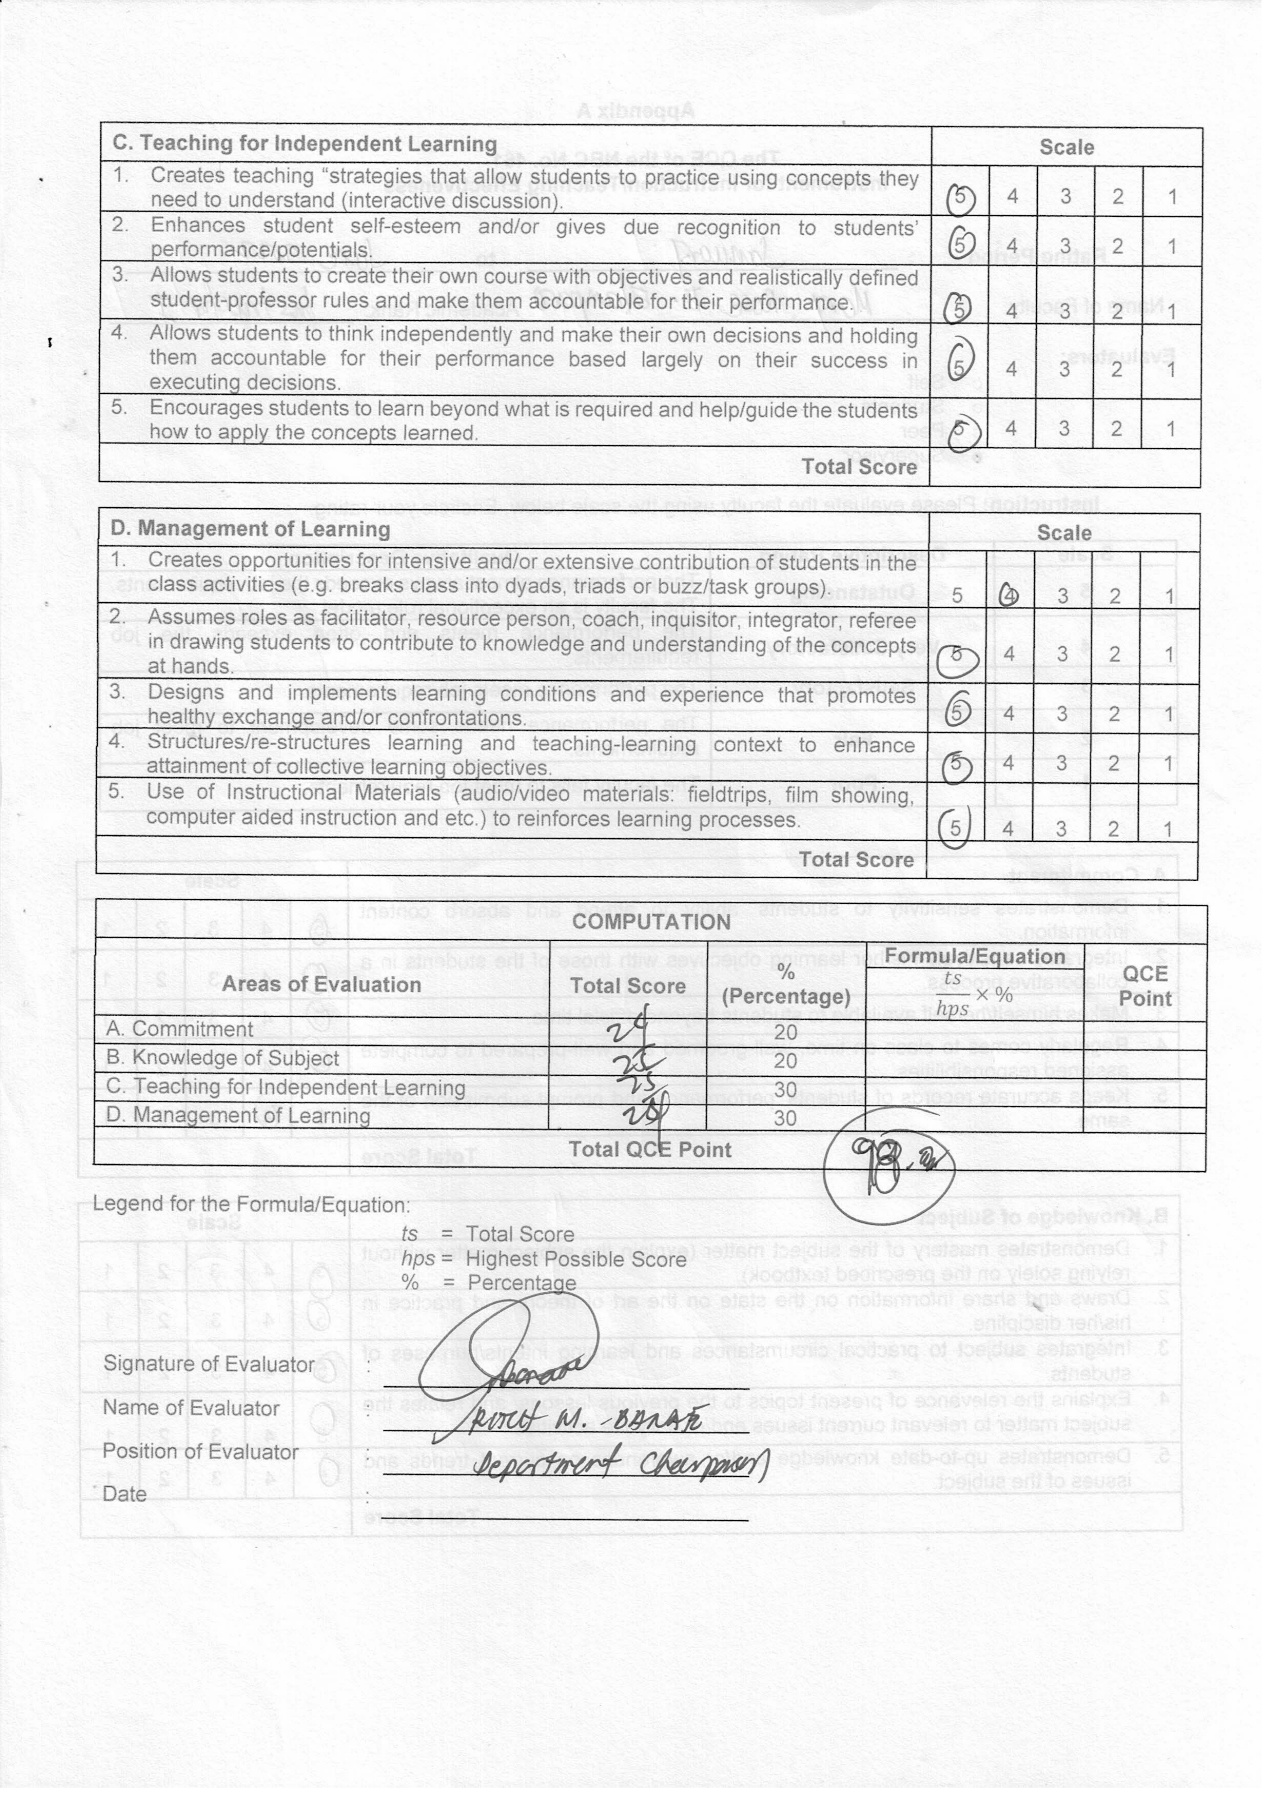 C. Teaching for Independent Learning Scale
1. Creates teaching “strategies that allow students to practice using concepts they
need to understand (interactive discussion). 5 4 3 2 1
2. Enhances student self-esteem and/or gives due recognition to students’
performance/potentials. 5 4 3 2 1
3. Allows students to create their own course with objectives and realistically defined
student-professor rules and make them accountable for their performance. 5 4 3 2 1
4. Allows students to think independently and make their own decisions and holding
them accountable for their performance based largely on their success in
executing decisions. 5 4 3 2 1
5. Encourages students to learn beyond what is required and help/guide the students
how to apply the concepts learned. 5 4 3 2 1
Total Score
D. Management of Learning Scale
1. Creates opportunities for intensive and/or extensive contribution of students in the
class activities (e.g. breaks class into dyads, triads or buzz/task groups). 5 4 3 2 1
2. Assumes roles as facilitator, resource person, coach, inquisitor, integrator, referee
in drawing students to contribute to knowledge and understanding of the concepts
at hands. 5 4 3 2 1
3. Designs and implements learning conditions and experience that promotes
healthy exchange and/or confrontations. 5 4 3 2 1
4. Structures/re-structures learning and teaching-learning context to enhance
attainment of collective learning objectives. 5 4 3 2 1
5. Use of Instructional Materials (audio/video materials: fieldtrips, film showing,
computer aided instruction and etc.) to reinforces learning processes. 5 4 3 2 1
Total Score
COMPUTATION
Areas of Evaluation Total Score % (Percentage) Formula/Equation ts/hps × % QCE Point
A. Commitment 24 20
B. Knowledge of Subject 25 20
C. Teaching for Independent Learning 25 30
D. Management of Learning 24 30
Total QCE Point 98.
Legend for the Formula/Equation:
ts = Total Score
hps = Highest Possible Score
% = Percentage
Signature of Evaluator :
Name of Evaluator : RUTH M.
Position of Evaluator : Department Chairperson
Date :